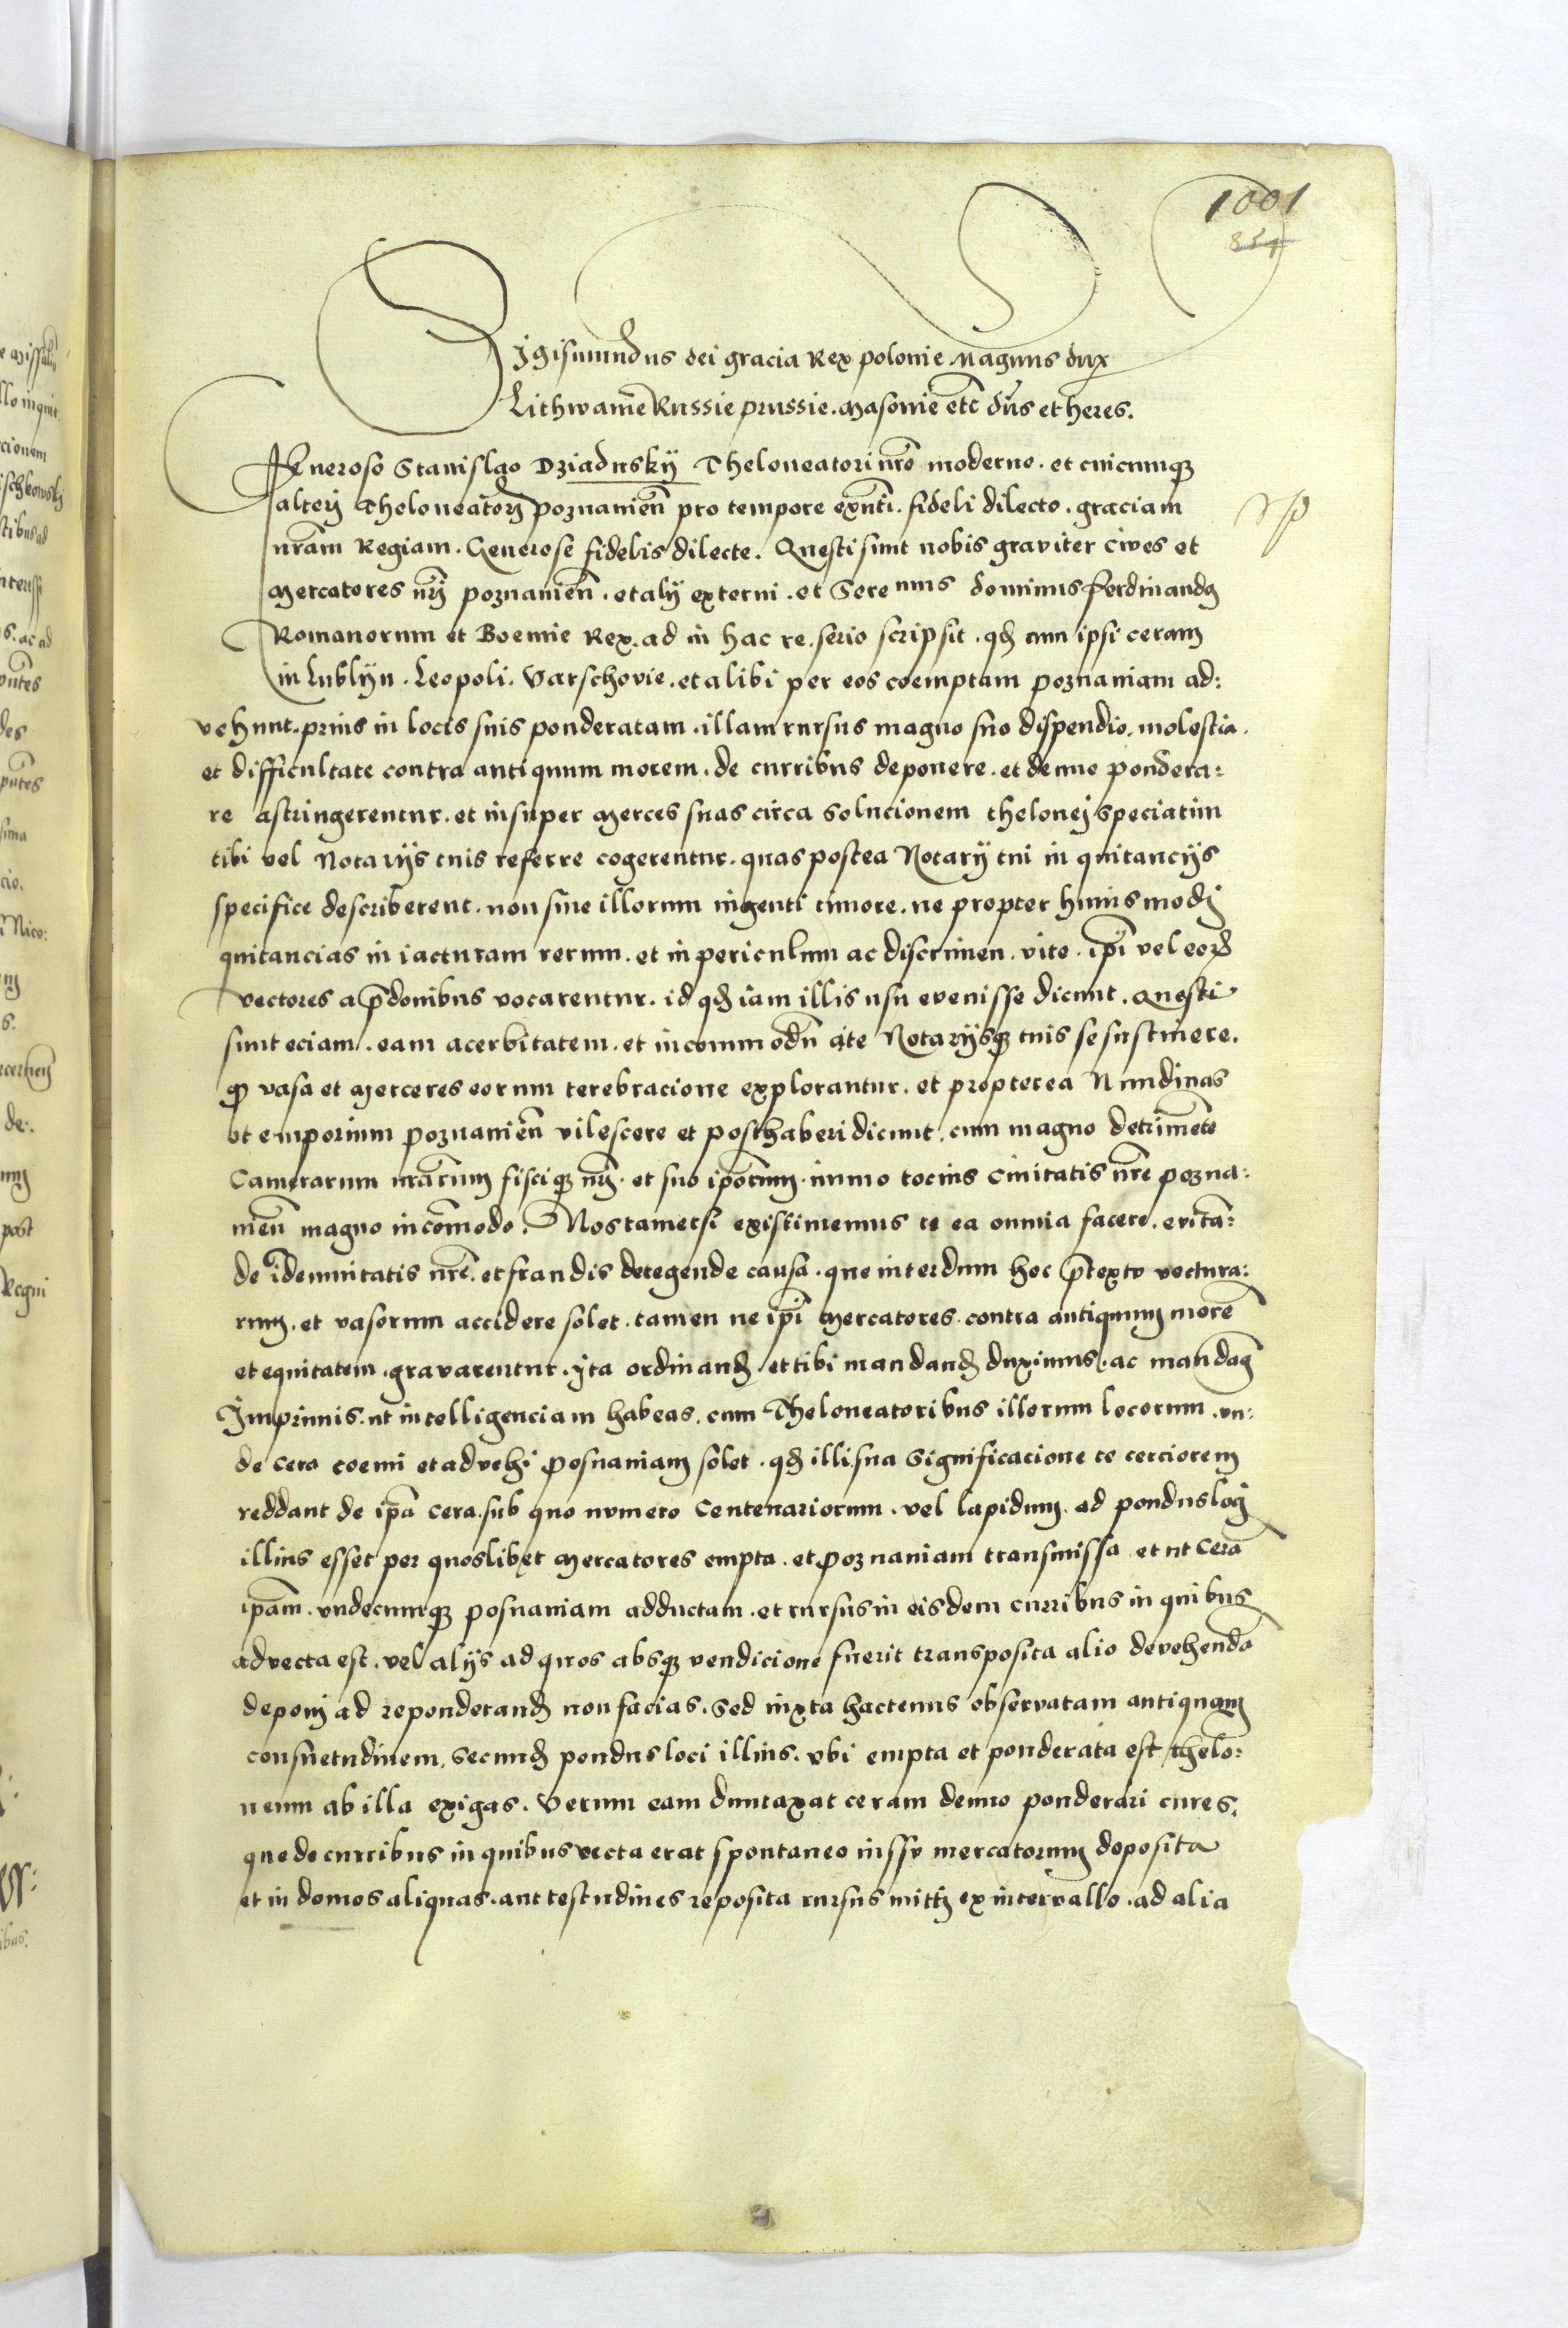 1001
854
Sigismundus dei gracia Rex polonie Magnus dux
Lithwanie Russie prussie. Masovie etc dns et heres.
Generoso Stanislao Dziadusky Theloneatori nro moderno. et cuicumq3
alteri Theloneatori poznanien pro tempore exnti. fideli dilecto. graciam
nram Regiam. Generose fidelis dilecte. Questi sunt nobis graviter cives et
Mercatores nri poznanien. et alij externi. et Serenmus dominus ferdinandus
Romanorum et Boemie Rex. ad in hac re. serio scripsit. qd cum ipsi ceram
in Lublyn. Leopoli. Varschovie. et alibi per eos coemptam poznaniam ad:
vehunt. prius in locis suis ponderatam. illam rursus magno suo dispendio. molestia.
et difficultate contra antiquum morem. de curribus deponere. et denuo pondera:
re astringerentur. et insuper Merces suas circa solucionem thelonei speciatim
tibi vel Notarijs tuis referre cogerentur. quas postea Notarij tui in quitancijs
specifice describerent. non sine illorum ingenti timore. ne propter huiusmodi
quitancias in iacturam rerum. et in periculum ac discrimen. vite. ipi vel eord
vectores a pdonibus vocarentur. id qd iam illis usu evenisse dicunt. Questi
sunt eciam. eam acerbitatem. et incommodu a te Notarijsq3 tuis se sustinere.
q vasa et Merceres eorum terebracione explorantur. et propterea Nundinas
et emporium poznanien vilescere et posthaberi dicunt. cum magno detrimeto
Camerarum nrarum fisciq3 nri. et suo ipsorum. immo tocius Civitatis nre pozna:
nien magno incomodo. Nos tametsi existimemus te ea omnia facere. evitan:
de idemnitatis nre. et fraudis detegende causa. que interdum hoc ptextu vectura:
rum. et vasorum accidere solet. tamen ne ipi Mercatores. contra antiquum more
et equitatem. gravarentur. yta ordinand. et tibi mandand duximus. ac mandam
Imprimis. ut intelligenciam habeas. cum Theloneatoribus illorum locorum. un:
de cera coemi et advehi posnaniam solet. qd illi sua significacione te cerciorem
reddant de ipa cera. sub quo numero Centenariorum. vel lapidum. ad pondus loci
illius esset per quoslibet Mercatores empta. et poznaniam transmissa et ut Cera
ipam. undecumq3 posnaniam adductam. et rursus in eisdem curribus in quibus
advecta est. vel alijs ad quos absq3 vendicione fuerit transposita alio devehenda
deponi ad reponderand non facias. Sed iuxta hactenus observatam antiquam
consuetudinem. secund pondus loci illius. ubi empta et ponderata est thelo:
neum ab illa exigas. Verum eam duntaxat ceram denuo ponderari cures.
que de curribus in quibus vecta erat spontaneo iussu mercatorum deposita
et in domos aliquas. aut testudines reposita rursus mitti ex intervallo. ad alia